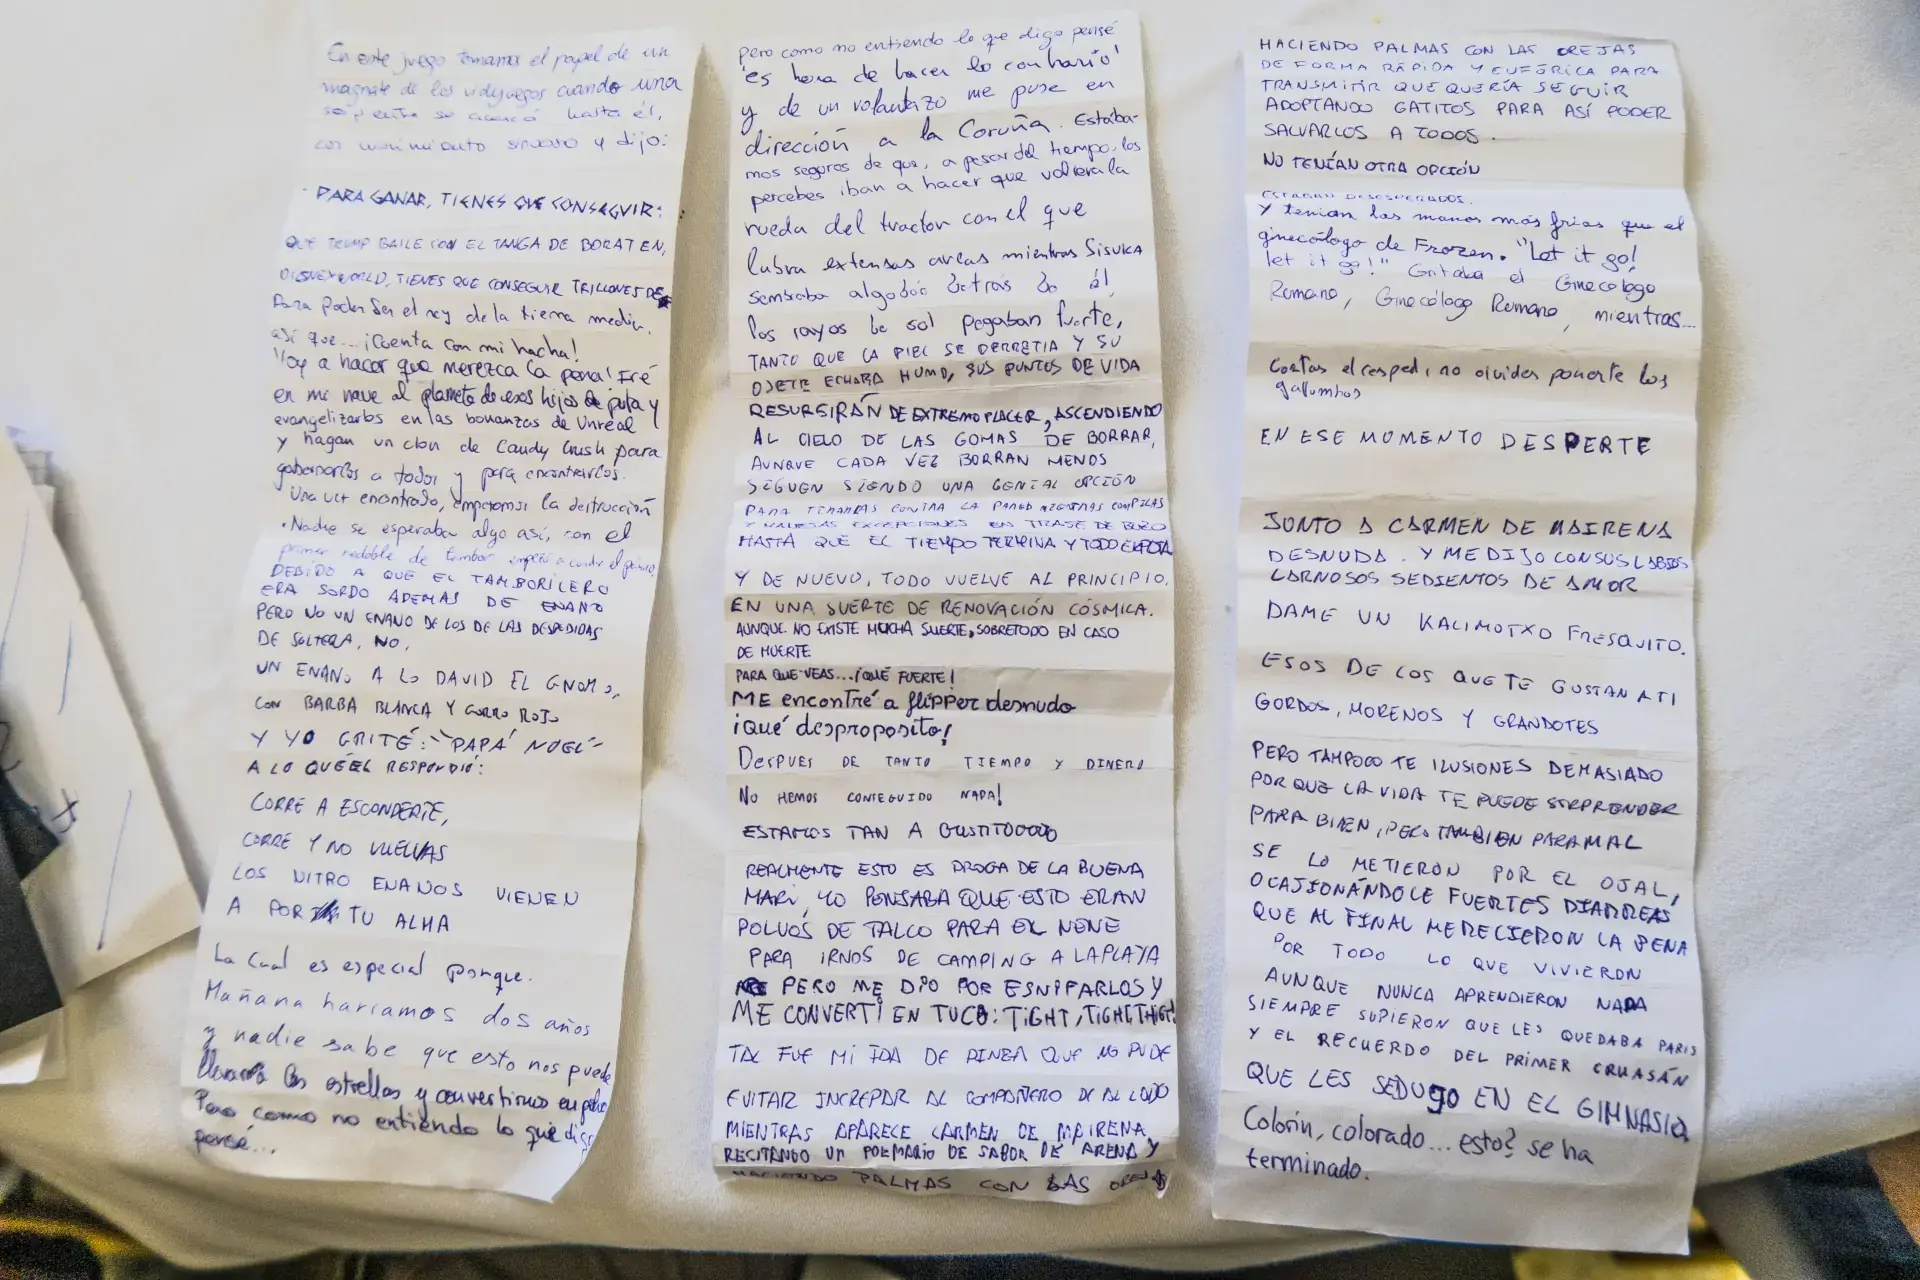 En este juego tomamos el papel de un
magnate de los videjuegos cuando una
serpiente se acercó hasta él,
con movimiento sinuoso y dijo:
PARA GANAR, TIENES QUE CONSEGUIR:
QUE TRUMP BAILE CON EL TANGA DE BORAT EN,
DISNEYWORLD, TIENES QUE CONSEGUIR TRILLONES DE
Para poder ser el rey de la tierra media,
así que... ¡Cuenta con mi hacha!
Voy a hacer que merezca la pena! Iré
en mi nave al planeta de esos hijos de puta y
evangelizarlos en las bonanzas de Unreal
y hagan un clon de Candy Crush para
gobernarlos a todos y para encontrarlos.
Una vez encontrado, empezamos la destrucción
Nadie se esperaba algo así, con el
primer redoble de tambor empezó a cundir el pánico,
DEBIDO A QUE EL TAMBORILERO
ERA SORDO ADEMÁS DE ENANO
PERO NO UN ENANO DE LOS DE LAS DESPEDIDAS
DE SOLTERA, NO,
UN ENANO A LO DAVID EL GNOMO,
CON BARBA BLANCA Y GORRO ROJO
Y YO GRITÉ: "PAPÁ NOEL"
A LO QUE ÉL RESPONDIÓ:
CORRE A ESCONDERTE,
CORRE Y NO VUELVAS
LOS NITRO ENANOS VIENEN
A POR TU ALMA
La cual es especial porque.
Mañana haríamos dos años
y nadie sabe que esto nos puede
llevar a las estrellas y convertirnos en polvo
Pero como no entiendo lo que digo
pensé...
Pero como no entiendo lo que digo pensé
'es hora de hacer lo contrario'
y de un volantazo me puse en
dirección a la Coruña. Estaba-
mos seguros de que, a pesar del tiempo, los
percebes iban a hacer que volviera la
rueda del tractor con el que
labra extensas areas mientras SISUKA
sembraba algodón detrás de él,
los rayos de sol pegaban fuerte,
TANTO QUE LA PIEL SE DERRETIA Y SU
OJETE ECHABA HUMO, SUS PUNTOS DE VIDA
RESURGIRÁN DE EXTREMO PLACER, ASCENDIENDO
AL CIELO DE LAS GOMAS DE BORRAR,
AUNQUE CADA VEZ BORRAN MENOS
SIGUEN SIENDO UNA GENIAL OPCIÓN
PARA TIRARLAS CONTRA LA PARED MIENTRAS COMPILAS
Y EXCEPCIONES EN TRAJE DE BUZO
HASTA QUE EL TIEMPO TERMINA Y TODO EXPLOTA
Y DE NUEVO, TODO VUELVE AL PRINCIPIO,
EN UNA SUERTE DE RENOVACIÓN CÓSMICA.
AUNQUE NO EXISTE MUCHA SUERTE, SOBRETODO EN CASO
DE MUERTE
PARA QUE VEAS... ¡QUÉ FUERTE!
ME encontré a flipper desnudo
¡Qué desproposito!
DESPUES DE TANTO TIEMPO Y DINERO
NO HEMOS CONSEGUIDO NADA!
ESTAMOS TAN A GUSTITOOOO
REALMENTE ESTO ES DROGA DE LA BUENA
MARI, YO PENSABA QUE ESTO ERAN
POLVOS DE TALCO PARA EL NENE
PARA IRNOS DE CAMPING A LA PLAYA
PERO ME DIO POR ESNIFARLOS Y
ME CONVERTÍ EN TUCO: TIGHT, TIGHT, TIGHT!
TAL FUE MI IDA DE PINZA QUE NO PUDE
EVITAR INCREPAR AL COMPAÑERO DE AL LADO
MIENTRAS APARECE CARMEN DE MAIRENA
RECITANDO UN POEMARIO DE SABOR DE ARENA Y
HACIENDO PALMAS CON LAS OREJAS
HACIENDO PALMAS CON LAS OREJAS
DE FORMA RÁPIDA Y EUFÓRICA PARA
TRANSMITIR QUE QUERÍA SEGUIR
ADOPTANDO GATITOS PARA ASÍ PODER
SALVARLOS A TODOS.
NO TENÍAN OTRA OPCIÓN
ESTABAN DESESPERADOS.
Y tenían las manos más frias que el
ginecólogo de Frozen. "Let it go!
let it go!" Gritaba el Ginecólogo
Romano, Ginecólogo Romano, mientras...
Cortas el cesped, no olvides ponerte los
gallumbos
EN ESE MOMENTO DESPERTE
JUNTO A CARMEN DE MAIRENA
DESNUDA. Y ME DIJO CON SUS LABIOS
CARNOSOS SEDIENTOS DE AMOR
DAME UN KALIMOTXO FRESQUITO.
ESOS DE LOS QUE TE GUSTAN A TI
GORDOS, MORENOS Y GRANDOTES
PERO TAMPOCO TE ILUSIONES DEMASIADO
PORQUE LA VIDA TE PUEDE SORPRENDER
PARA BIEN, PERO TAMBIEN PARA MAL
SE LO METIERON POR EL OJAL,
OCASIONÁNDOLE FUERTES DIARREAS
QUE AL FINAL MERECIERON LA PENA
POR TODO LO QUE VIVIERON
AUNQUE NUNCA APRENDIERON NADA
SIEMPRE SUPIERON QUE LES QUEDABA PARIS
Y EL RECUERDO DEL PRIMER CRUASÁN
QUE LES SEDUJO EN EL GIMNASIO
Colorín, colorado... esto? se ha
terminado.